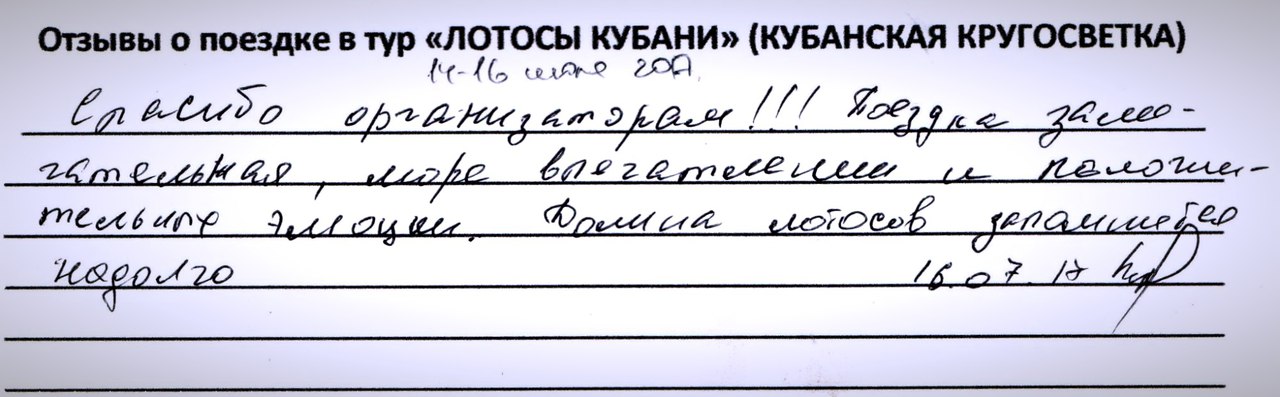 Отзывы о поездке в тур «ЛОТОСЫ КУБАНИ» (КУБАНСКАЯ КРУГОСВЕТКА)
14-16 июля 2017.
Спасибо организаторам!!! Поездка заме-
чательная, море впечатлений и положи-
тельные эмоции. Долина лотосов запомнится
надолго 16.07.17